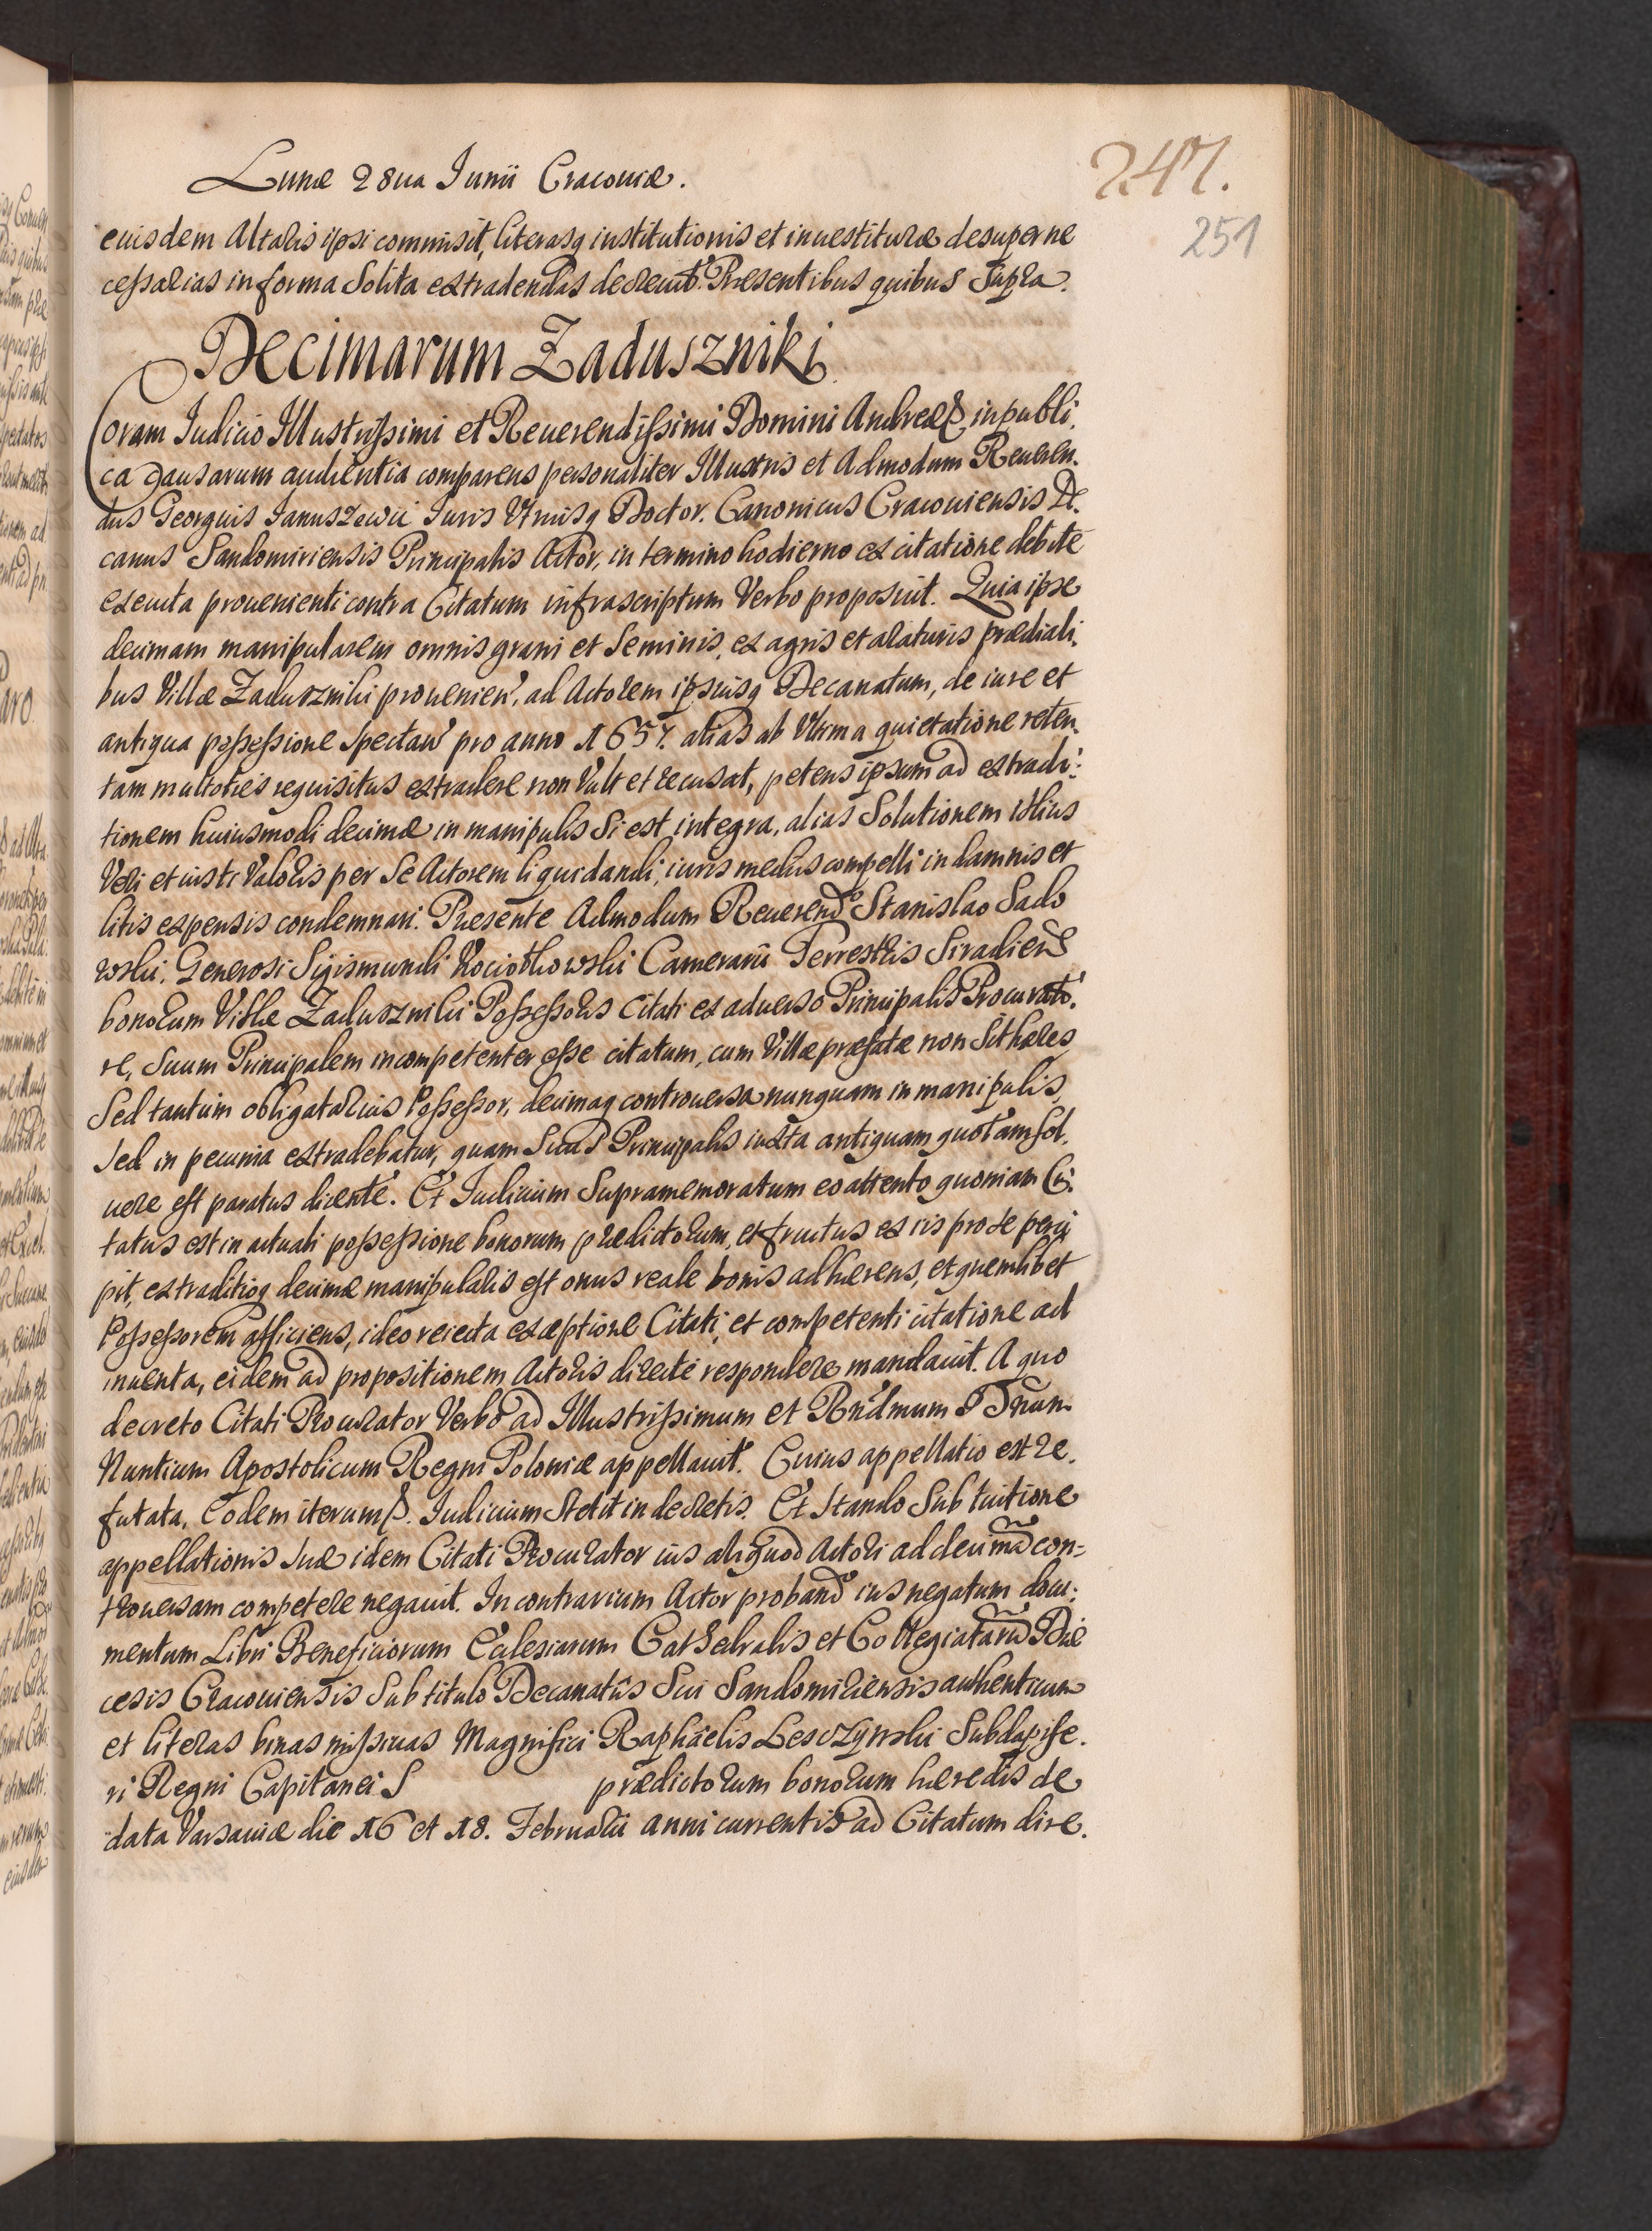 Lunæ 28ua Iunii Cracouiæ.
247.
251
euisdem Altaris ipsi commisit, literasq institutionis et inuestituræ desuper ne
cessarias in forma Solita extradendas decreuit. Præsentibus quibus Supra.
Decimarum Zaduszniki
Coram Iudicio Illustrissimi et Reuerendissimi Domini Andreæ inpubli.
ca Causarum audientia comparens personaliter Illustris et Admodum Reueren.
dus Georgius Ianuszewic Iuris Vtriusq Doctor. Canonicus Cracouiensis De.
canus Sandomiriensis Principalis Actor, in termino hodierno ex citatione debite
executa prouenienti contra Citatum infrascriptum Verbo proposuit. Quia ipse
decimam manipularem omnis grani et Seminis, ex agris et araturis prædiali.
bus Villæ Zaduszniki prouenien, ad Actorem ipsiusq Decanatum, de iure et
antiqua possessione Spectan pro anno 1657. alias ab Vltima quietatione reten.
tam multoties requisitus extradere non Vult et recusat, petens ipsum ad extradi:
tionem huiusmodi decimæ in manipulis Si est integra, alias Solutionem illius
Veri et iusti Valoris per Se Actorem liquidandi, iuris medijs compelli in damnis et
litis expensis condemnari. Præsente Admodum Reuerend Stanislao Sado
wski, Generosi Sigismundi Kociolkowski Camerarii Terrestris Siradien
bonorum Villæ Zaduszniki Possessoris Citati ex aduerso Principalis Procurato.
re, Suum Principalem incompetenter esse citatum, cum Villæ præfatæ non Sit hæres
Sed tantum obligatarius Possessor, decimaq controuersa nunquam in manipulis,
Sed in pecunia extradebatur, quam Suus Principalis iuxta antiquam quotam Sol.
uere est paratus dicente. Et Iudicium Supramemoratum eo attento quoniam Ci.
tatus est in actuali possessione bonorum prædictorum, et fructus ex iis pro se perci
pit, extraditioq decimæ manipularis est onus reale bonis adhærens, et quemlibet
Possessorem afficiens, ideo reiecta exceptione Citati, et competenti citatione ad
inuenta, eidem ad propositionem Actoris directe respondere mandauit. A quo
decreto Citati Procurator Verbo ad Illustrissimum et Rndmum D Dnum
Nuntium Apostolicum Regni Poloniæ appellauit. Cuius appellatio est re.
futata, Eodem iterum. Iudicium Stetit in decretis. Et Stando Sub tuitione
appellationis Suæ idem Citati Procurator ius aliquod Actori ad decimā con=
trouersam competere negauit. In contrarium Actor proband ius negatum docu:
mentum Libri Beneficiorum Ecclesiarum Cathedralis et Collegiatarū Diæ
cesis Cracouiensis Sub titulo Decanatus Sui Sandomiriensis authenticum
et literas binas missiuas Magnifici Raphaelis Lesczynski Subdapife.
ri Regni Capitanei S prædictorum bonorum hæredis de
data Varsauiæ die 16 et 18. Februarii anni currentis ad Citatum dire.